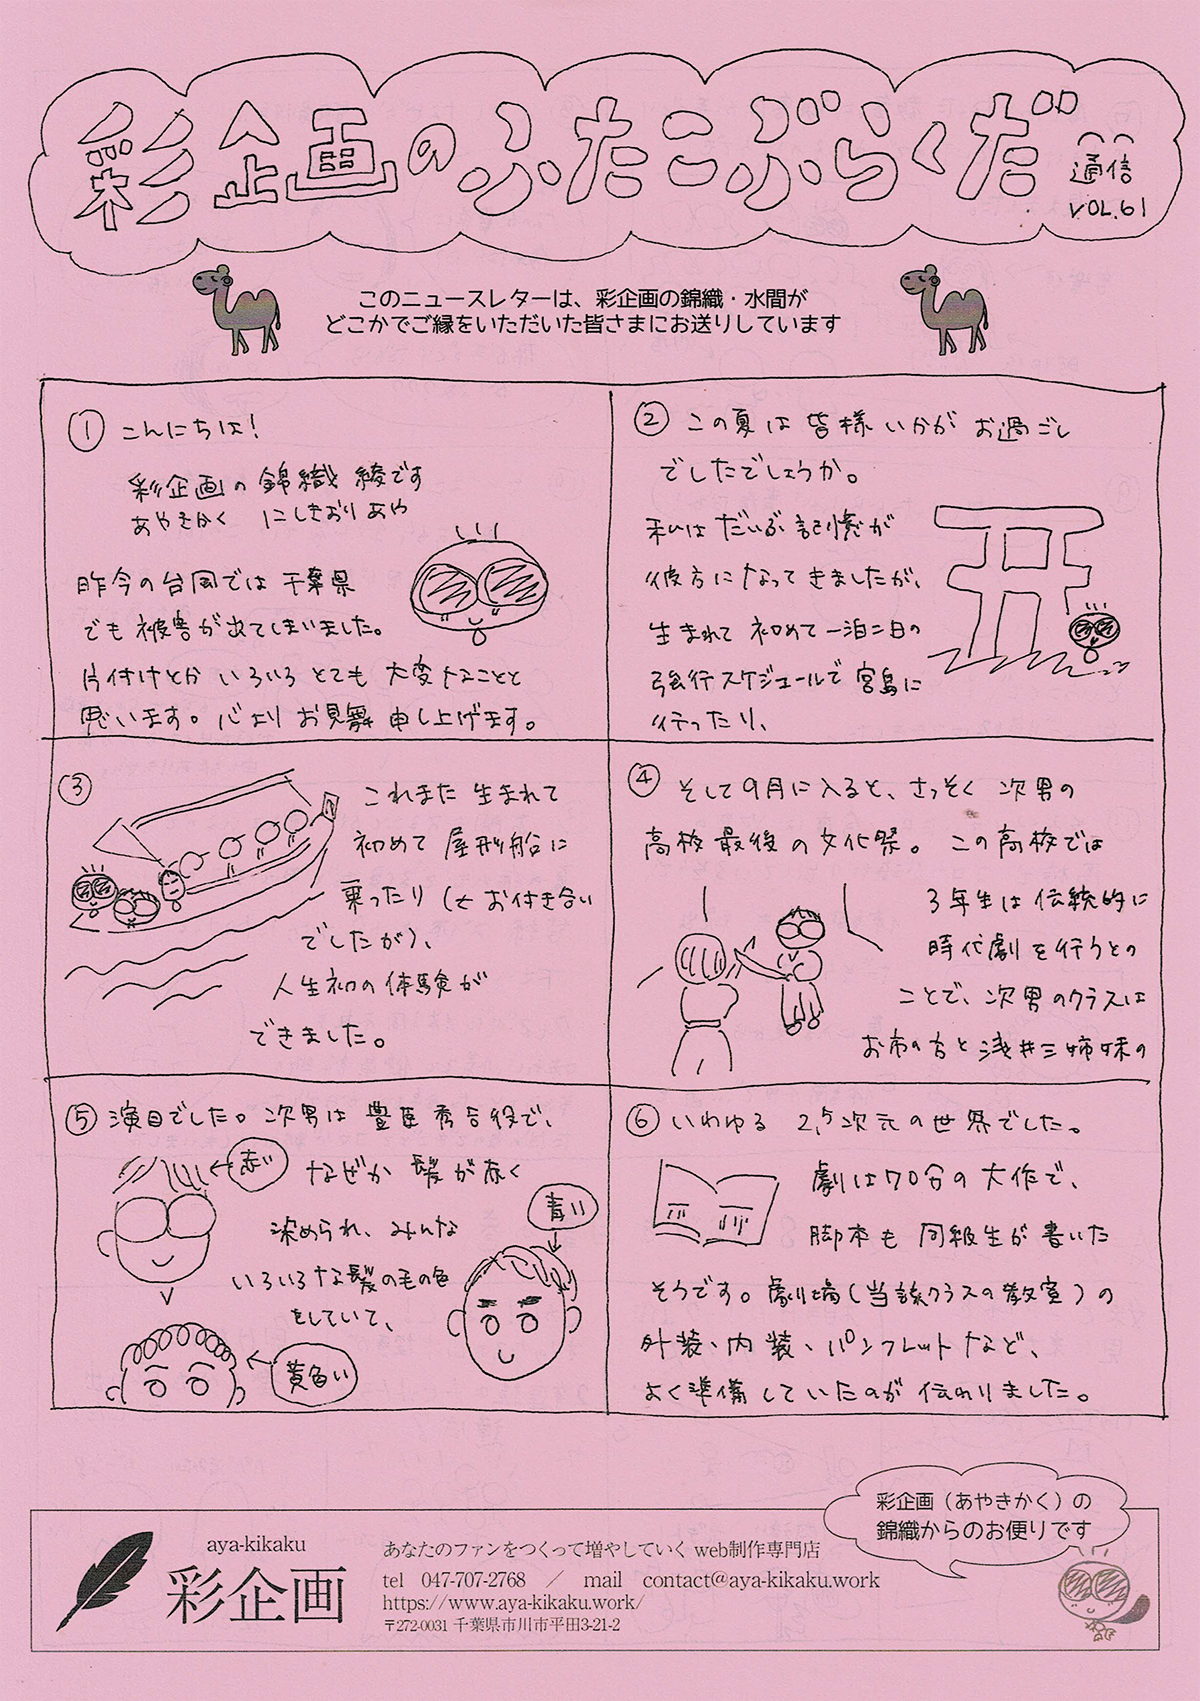 彩企画のふたこぶらくだ
通信
VOL.61
このニュースレターは、彩企画の錦織・水間が
どこかでご縁をいただいた皆さまにお送りしています
① こんにちは!
彩企画の錦織 綾です
あやきかく にしきおりあや
昨今の台風では千葉県
でも被害が出てしまいました。
片付けとかいろいろとても大変なことと
思います。心よりお見舞申し上げます。
② この夏は皆様いかがお過ごし
でしたでしょうか。
私はだいぶ記憶が
彼方になってきましたが、
生まれて初めて一泊二日の
強行スケジュールで宮島に
行ったり、
③
これまた生まれて
初めて屋形船に
乗ったり(をお付き合い
でしたが)、
人生初の体験が
できました。
④ そして9月に入ると、さっそく次男の
高校最後の文化祭。この高校では
3年生は伝統的に
時代劇を行うとの
ことで、次男のクラスは
お市の方と浅井三姉妹の
⑤ 演目でした。次男は豊臣秀吉役で、
赤い
なぜか髪が赤く
青い
染められ、みんな
いろいろな髪の毛の色
をしていて、
黄色い
⑥ いわゆる2,5次元の世界でした。
劇は70分の大作で、
脚本も同級生が書いた
そうです。劇場(当該クラスの教室)の
外装、内装、パンフレットなど、
よく準備していたのが伝わりました。
彩企画(あやきかく)の
錦織からのお便りです
aya-kikaku
彩企画
あなたのファンをつくって増やしていく web制作専門店
tel 047-707-2768 / mail contact@aya-kikaku.work
https://www.aya-kikaku.work/
〒272-0031 千葉県市川市平田3-21-2